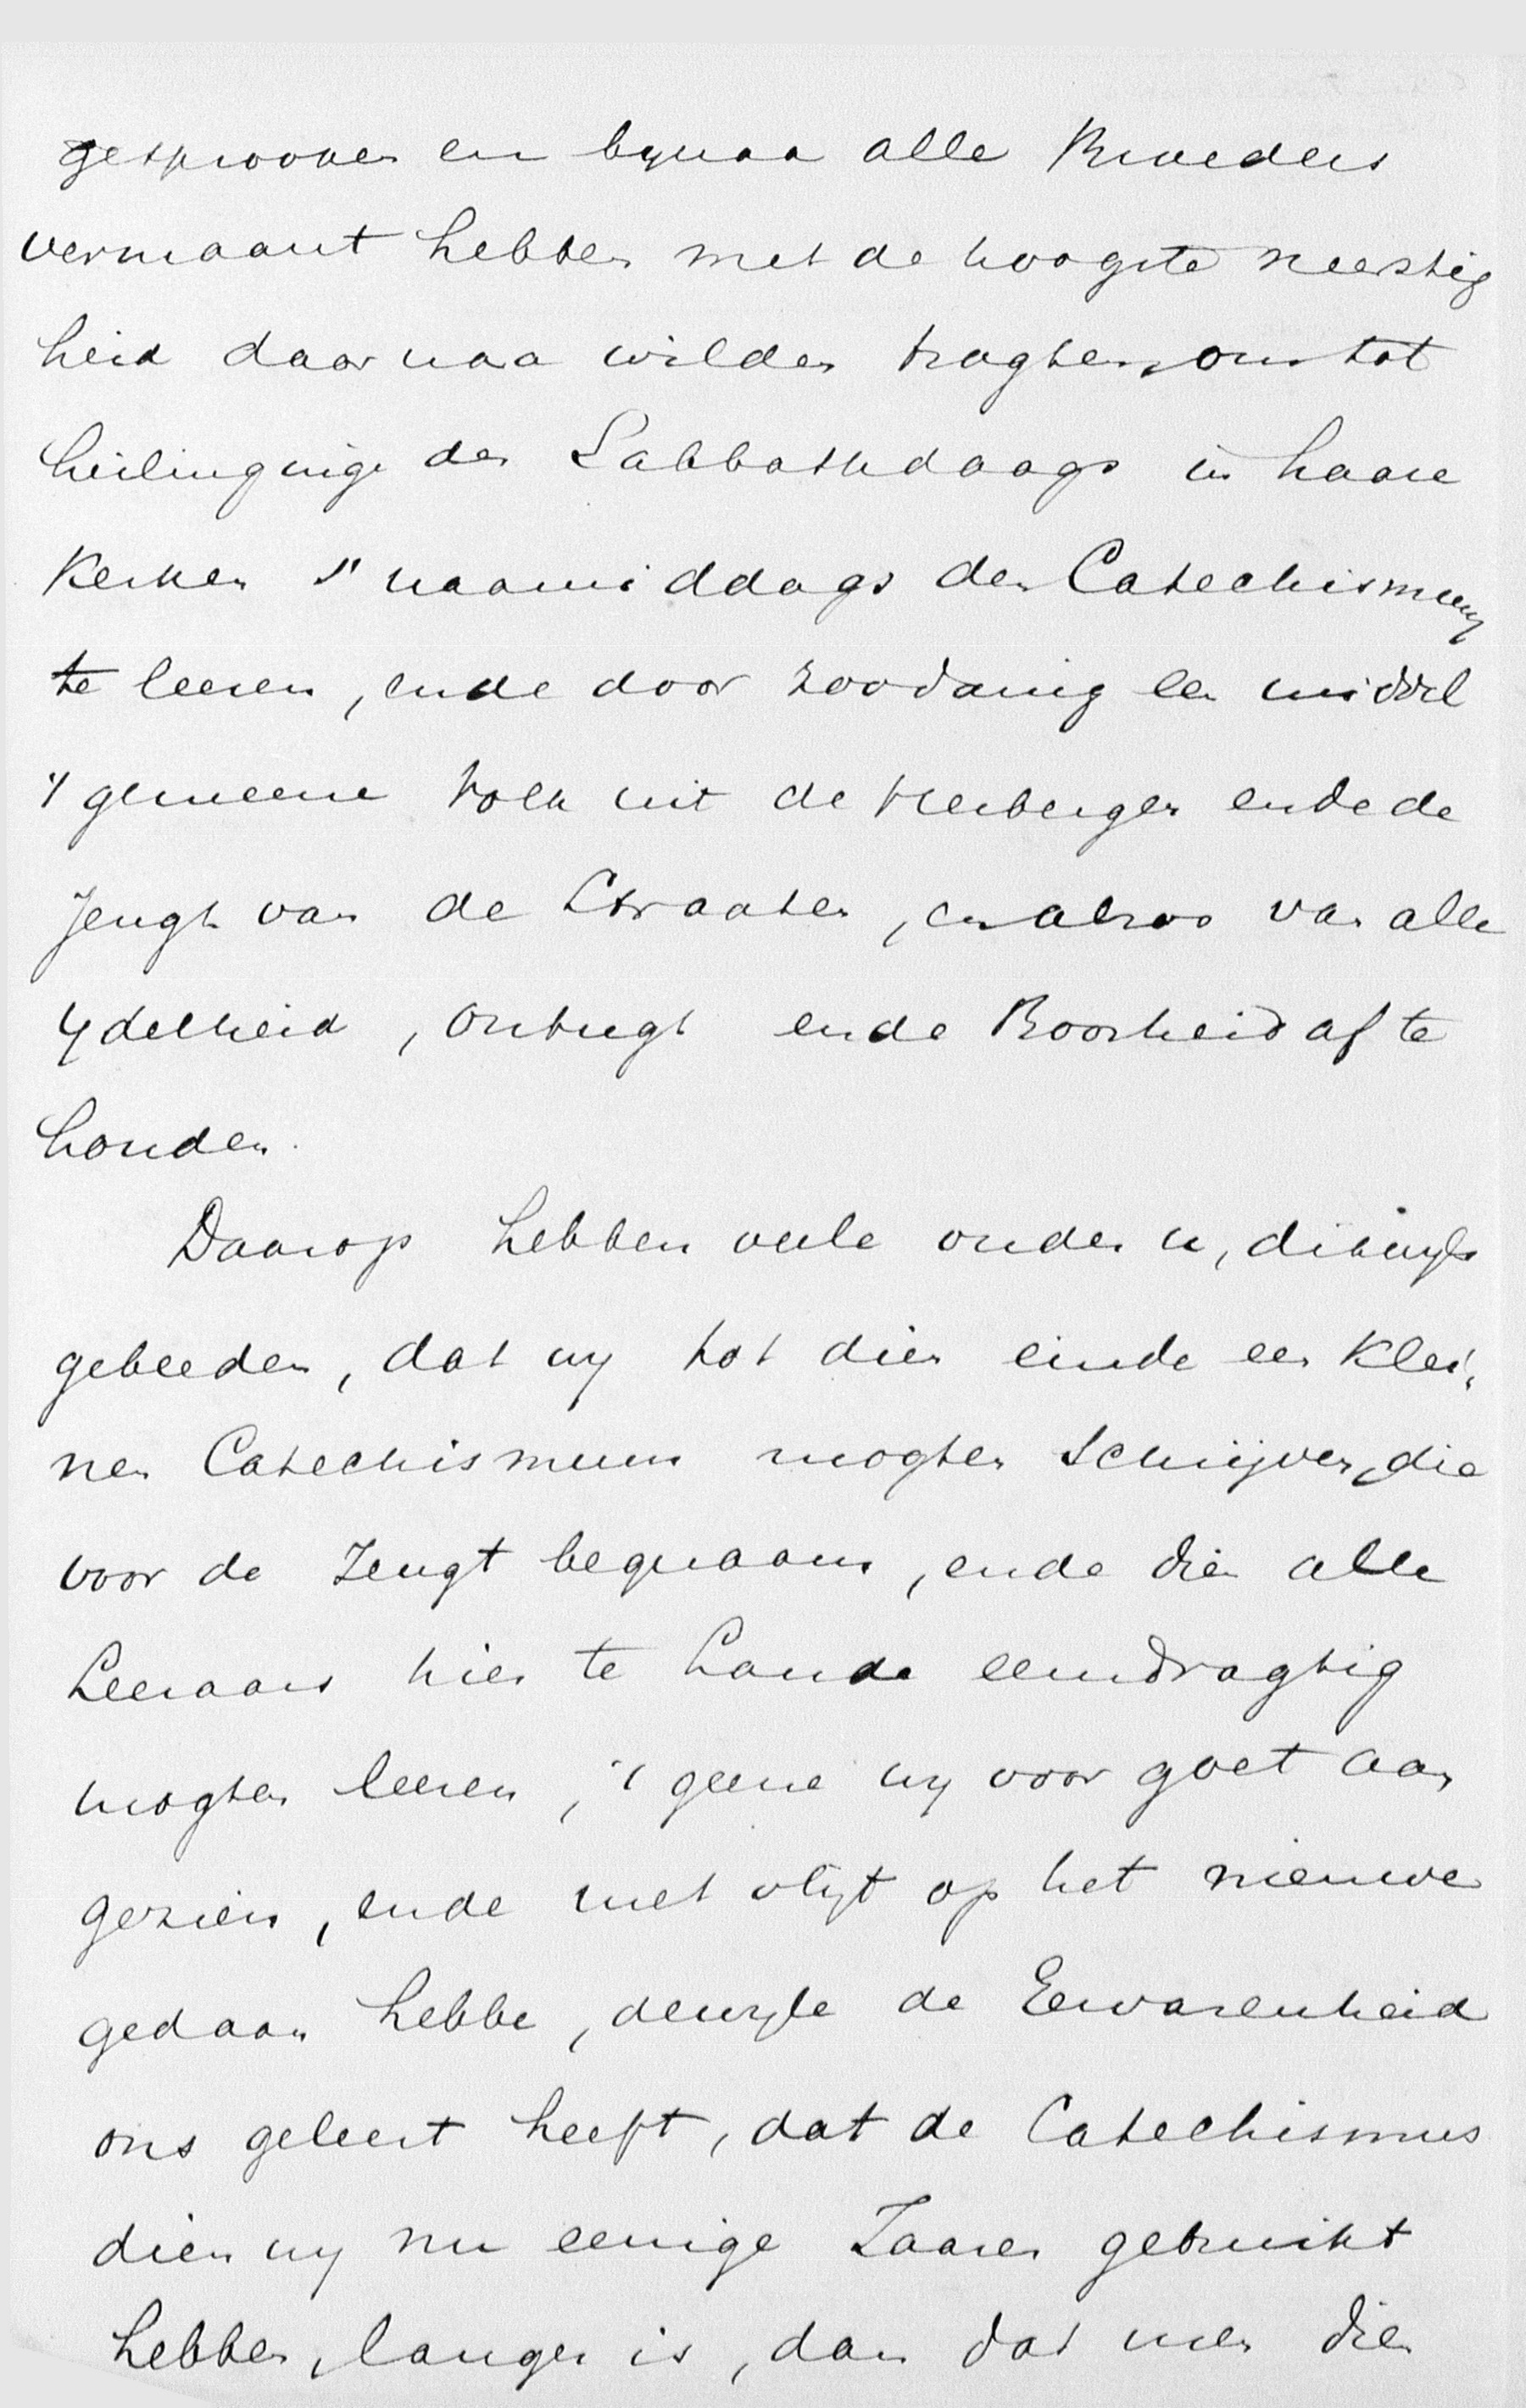 gesprooken en bynaa alle Broeders
vermaant hebben met de hoogste neerstig
heid daar naa wilden tragten, om tot
heiliginge des Sabbathdaags in haare
Kerken s' naamiddags den Catechismum
te leeren, ende door zoodanig een middel
't gemeene Volk uit de Herbergen ende de
Jeugt van de Straaten, en alzoo van alle
Ydelheid, Ontugt ende Boosheid af te
houden.
Daarop hebben veele onder u, dikwyls
gebeeden, dat wy tot dien einde een Klei,
nen Catechismum mogten Schrijven, die
voor de Jeugt bequaam, ende dien alle
Leeraars hier te Lande eendragtig
mogten leeren, 't geene wy voor goet aan
gezien, ende met vlyt op het nieuwe
gedaan hebbe, dewyle de Ervarenheid
ons geleert heeft, dat de Catechismus
dien wy nu eenige Jaaren gebruikt
hebben, langer is, dan dat men dien